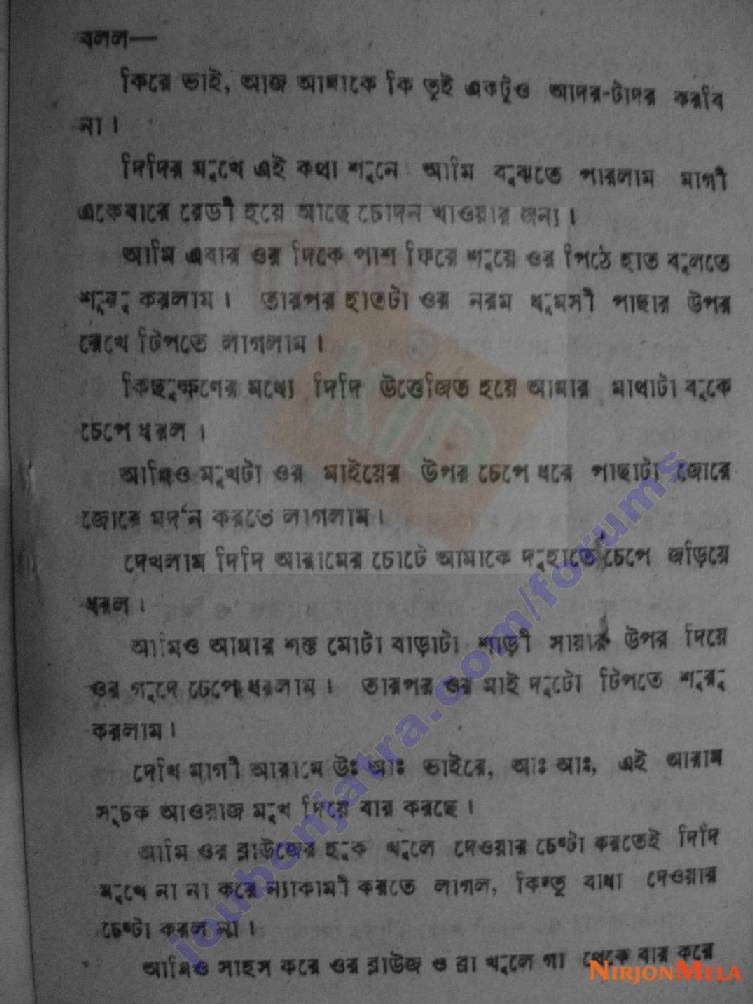 বলল—
কিরে ভাই, আজ আমাকে কি তুই একটুও আদর-টাদর করবি
না।
দিদির মুখে এই কথা শুনে আমি বুঝতে পারলাম মাগী
একেবারে রেডী হয়ে আছে চোদন খাওয়ার জন্য।
আমি এবার ওর দিকে পাশ ফিরে শুয়ে ওর পিঠে হাত বুলতে
শুরু করলাম। তারপর হাতটা ওর নরম ধুমসী পাছার উপর
রেখে টিপতে লাগলাম।
কিছুক্ষণের মধ্যে দিদি উত্তেজিত হয়ে আমার মাথাটা বুকে
চেপে ধরল।
আমিও মুখটা ওর মাইয়ের উপর চেপে ধরে পাছাটা জোরে
জোরে মর্দন করতে লাগলাম।
দেখলাম দিদি আরামের চোটে আমাকে দুহাতে চেপে জড়িয়ে
ধরল।
আমিও আমার শক্ত মোটা বাড়াটা শাড়ী সায়ার উপর দিয়ে
ওর গুদে চেপে ধরলাম। তারপর ওর মাই দুটো টিপতে শুরু
করলাম।
দেখি মাগী আরামে উঃ আঃ ভাইরে, আঃ আঃ, এই আরাম
সূচক আওয়াজ মুখ দিয়ে বার করছে।
আমি ওর ব্লাউজের হুক খুলে দেওয়ার চেষ্টা করতেই দিদি
মুখে না না করে ন্যাকামী করতে লাগল, কিন্তু বাধা দেওয়ার
চেষ্টা করল না।
আমিও সাহস করে ওর ব্লাউজ ও ব্রা খুলে গা থেকে বার করে
KID
joubonjatra.com/forums
NIRJONMELA